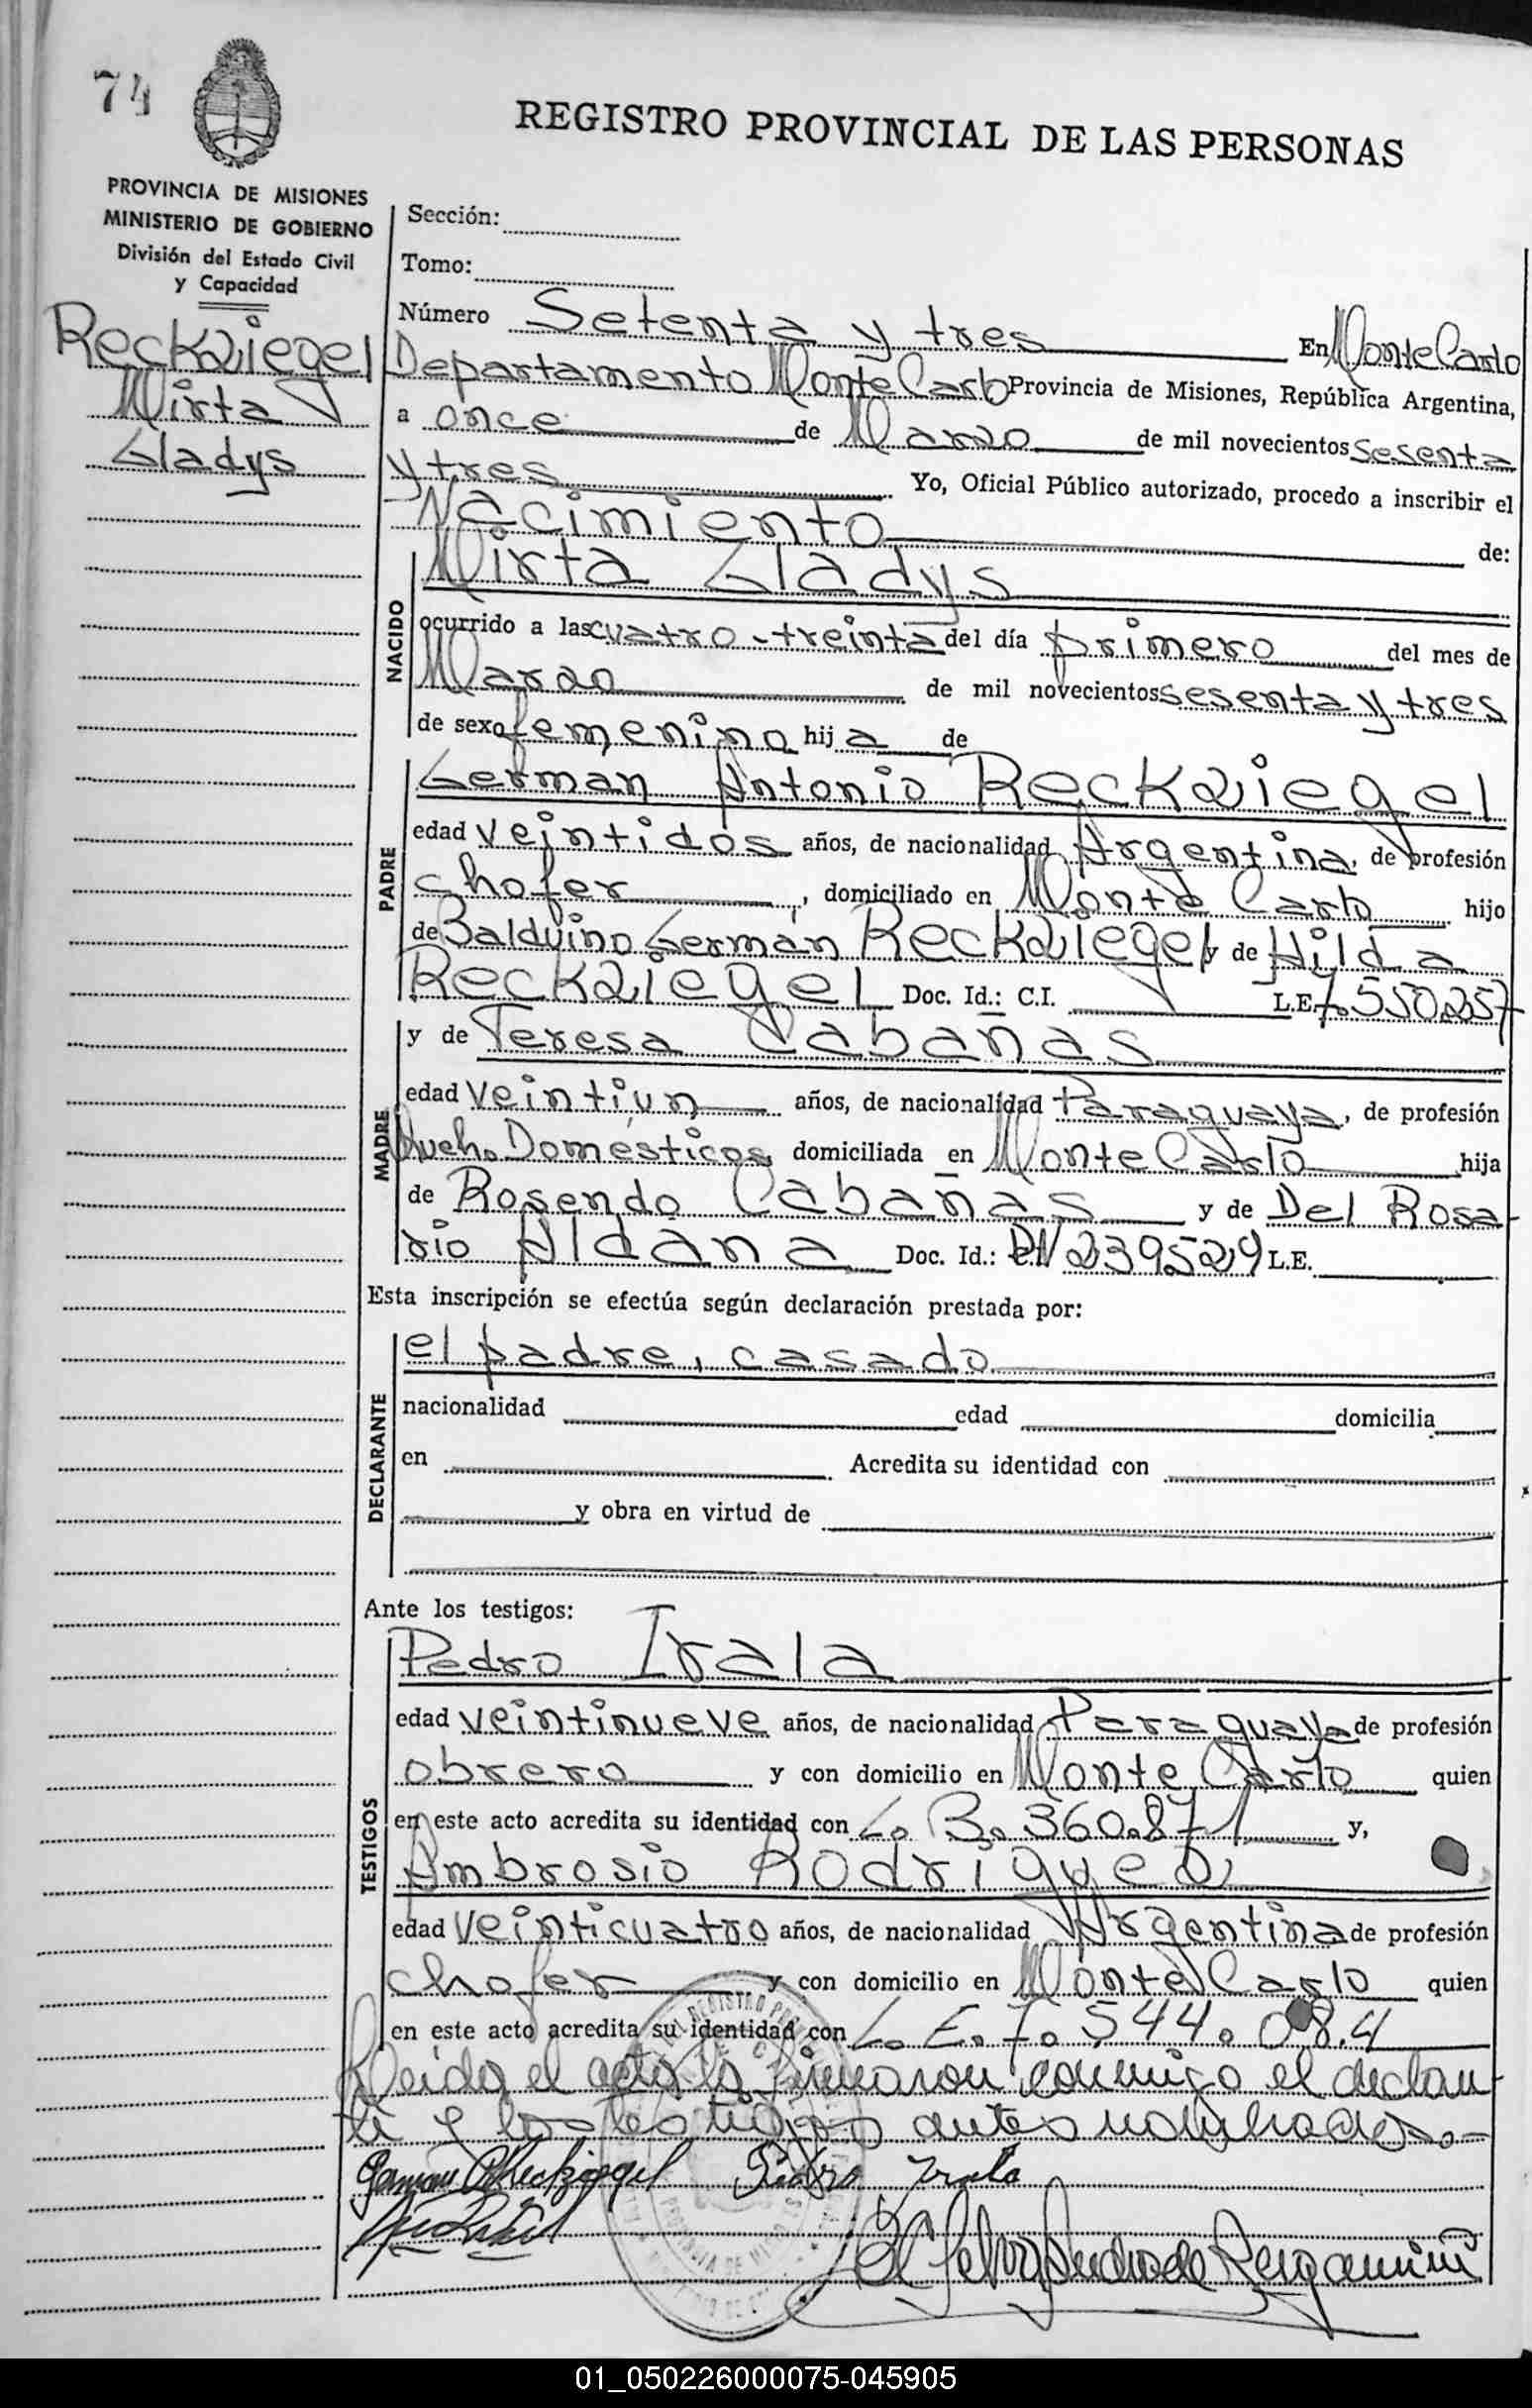 74
REGISTRO PROVINCIAL DE LAS PERSONAS
PROVINCIA DE MISIONES
MINISTERIO DE GOBIERNO
División del Estado Civil
y Capacidad
Reckziegel
Mirta
Gladys
Sección:
Tomo:
Número Setenta y tres En Monte Carlo
Departamento Monte Carlo Provincia de Misiones, República Argentina,
a once de Marzo de mil novecientos Sesenta
y tres Yo, Oficial Público autorizado, procedo a inscribir el
Nacimiento de:
NACIDO
Mirta Gladys
ocurrido a las cuatro - treinta del día primero del mes de
Marzo de mil novecientos sesenta y tres
de sexo femenino hij a de
PADRE
German Antonio Reckziegel
edad veintidos años, de nacionalidad Argentina, de profesión
chofer, domiciliado en Monte Carlo hijo
de Balduino Germán Reckziegel y de Hilda
Reckziegel Doc. Id.: C.I. L.E. 7.550.257
MADRE
y de Teresa Cabañas
edad veintiun años, de nacionalidad Paraguaya, de profesión
Queh. Domésticos, domiciliada en Monte Carlo hija
de Rosendo Cabañas y de Del Rosa-
rio Aldana Doc. Id.: 239529 L.E.
Esta inscripción se efectúa según declaración prestada por:
DECLARANTE
el padre, casado
nacionalidad edad domicilia
en Acredita su identidad con
y obra en virtud de
Ante los testigos:
TESTIGOS
Pedro Irala
edad veintinueve años, de nacionalidad Paraguaya de profesión
obrero y con domicilio en Monte Carlo quien
en este acto acredita su identidad con L. B. 360.871 y,
Ambrosio Rodriguez
edad veinticuatro años, de nacionalidad Argentina de profesión
chofer y con domicilio en Monte Carlo quien
en este acto acredita su identidad con L. E. 7. 544. 084
Leida el acta la firmaron conmigo el declaran-
te y los testigos antes nombrados.-
German A Reckziegel Pedro Irala
01_050226000075-045905